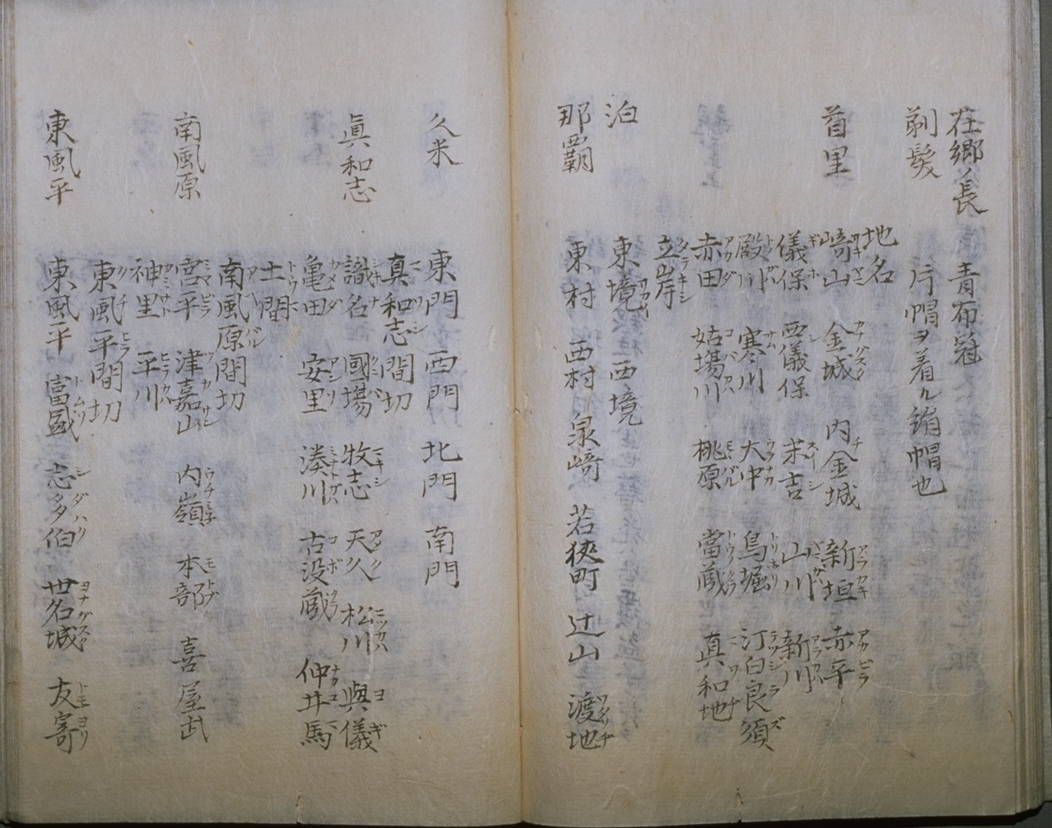 在郷ノ長 青布冠
剃髪 片帽ヲ着ル 綃帽也
地名
首里 崎山 金城 内金城 新垣 赤平
儀保 西儀保 茉吉 山川 新川
殿川 寒川 大中 鳥堀 汀白良須
赤田 姑場川 桃原 當蔵 真和地
立岸
泊 東境 西境
那覇 東村 西村 泉崎 若狹町 辻山 渡地
久米 東門 西門 北門 南門
眞和志間切
眞和志 識名 國場 牧志 天久 松川 與儀
亀田 安里 湊川 古没蔵 仲井馬
土間
南風原間切
南風原 宮平 津嘉山 内嶺 本部 喜屋武
神里 平川
東風平間切
東風平 東風平 富盛 志多伯 世名城 友寄